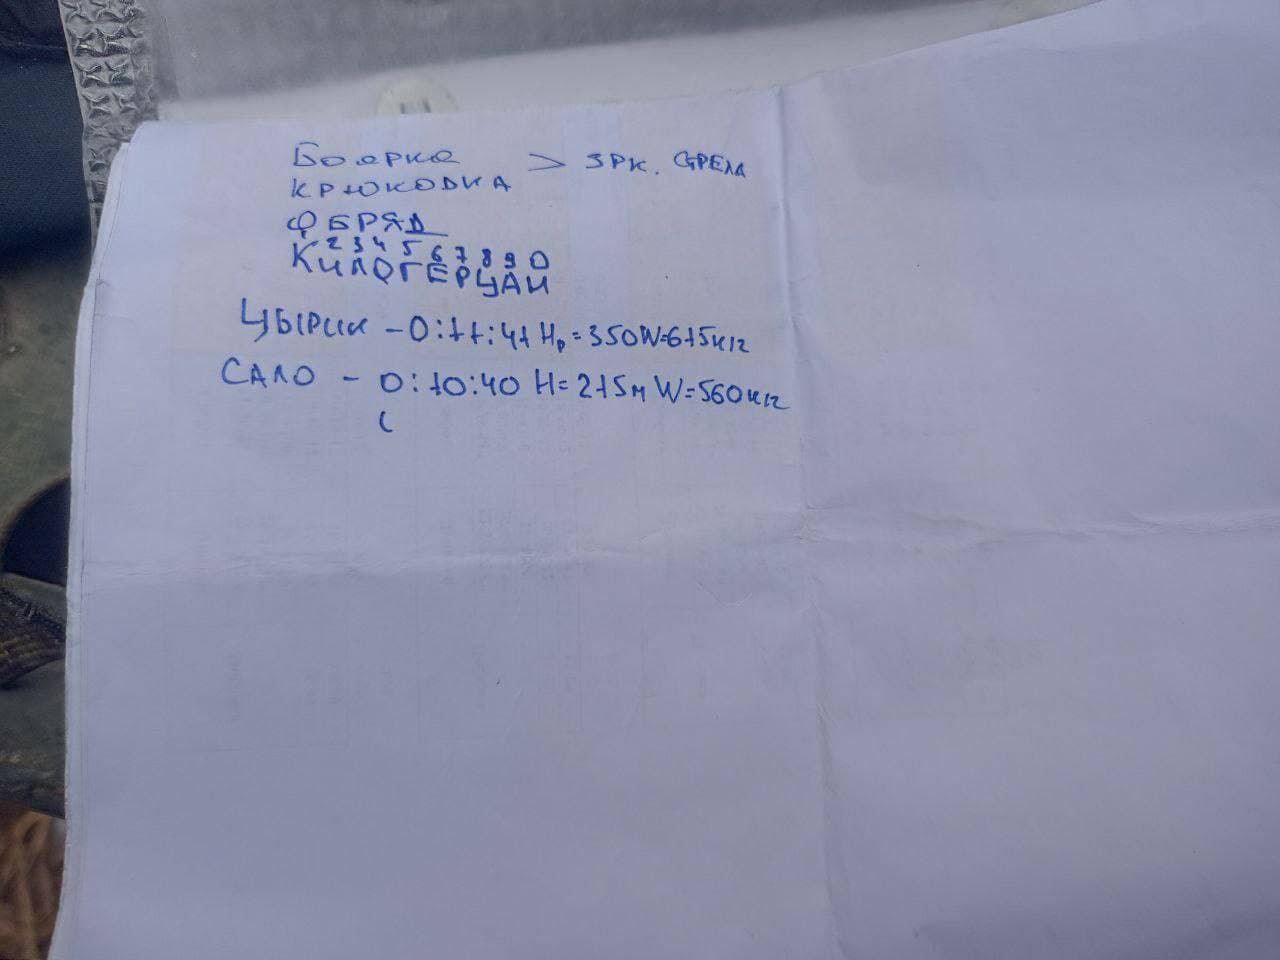 Боярка > ЗРК. СТРЕЛА
КРЮКОВКА
ОБРЯД
2 3 4 5 6 7 8 9 0
КИЛОГЕРЦАИ
ЦЫРИК - 0:11:41 Hр=350W=615кг
САЛО - 0:10:40 H=215м W=560кг
(